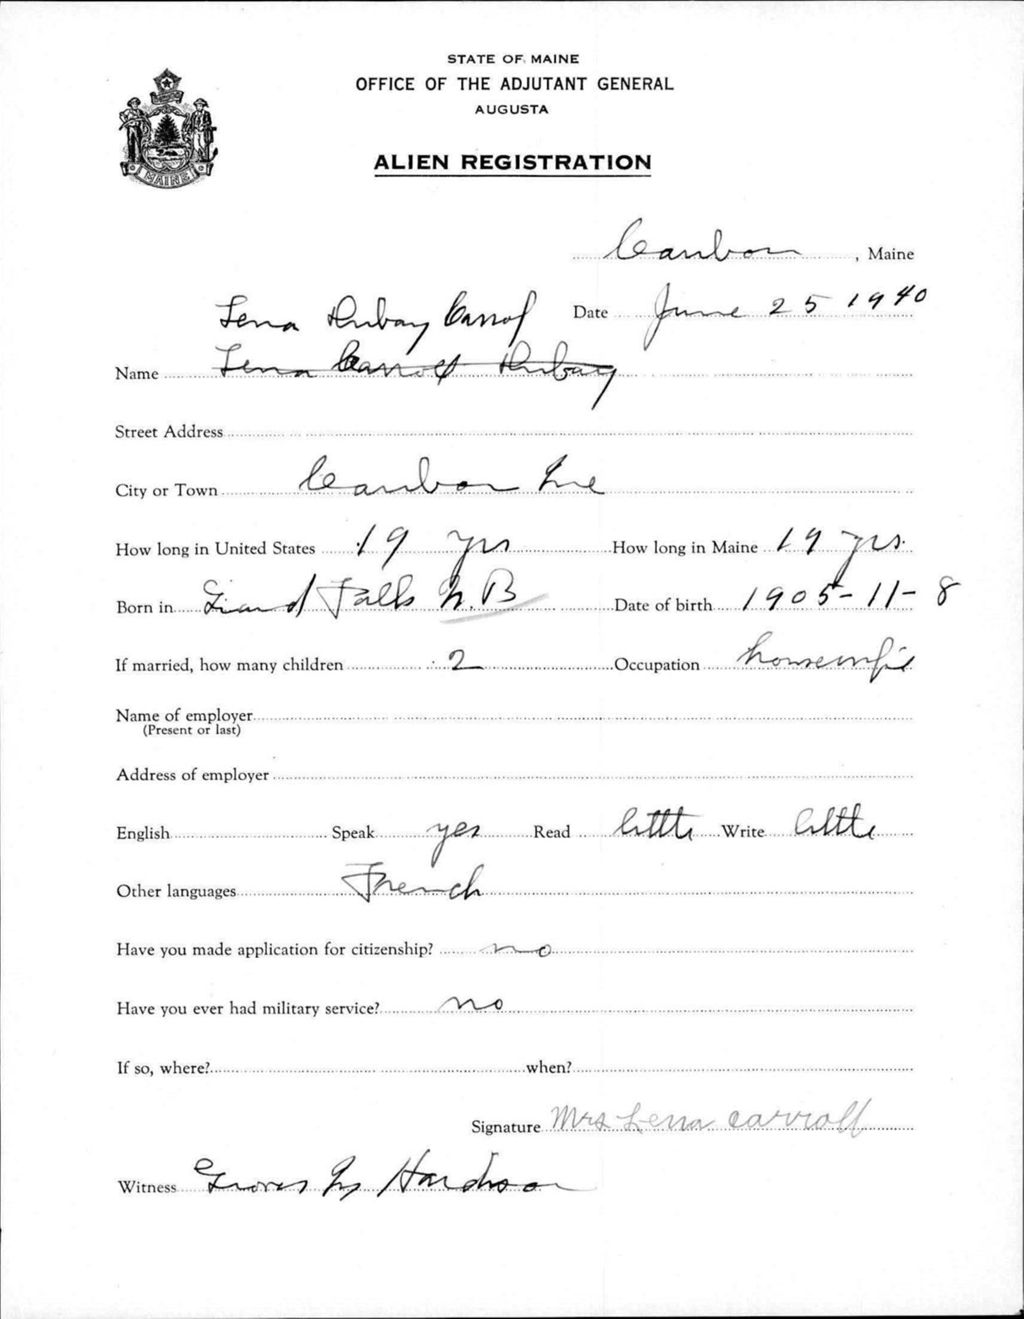 STATE OF MAINE
OFFICE OF THE ADJUTANT GENERAL
AUGUSTA
MAINE
ALIEN REGISTRATION
Caribou, Maine
Date June 25 1940
Lena Carrol
Name Lena Carroll
Street Address
City or Town Caribou Me
How long in United States 19 yrs How long in Maine 19 yrs.
Born in Grand Falls N.B Date of birth 1905-11-8
If married, how many children 2 Occupation housewife
Name of employer
(Present or last)
Address of employer
English Speak yes Read little Write little
Other languages French
Have you made application for citizenship? no
Have you ever had military service? no
If so, where? when?
Signature Mrs Lena Carroll
Witness Hardison